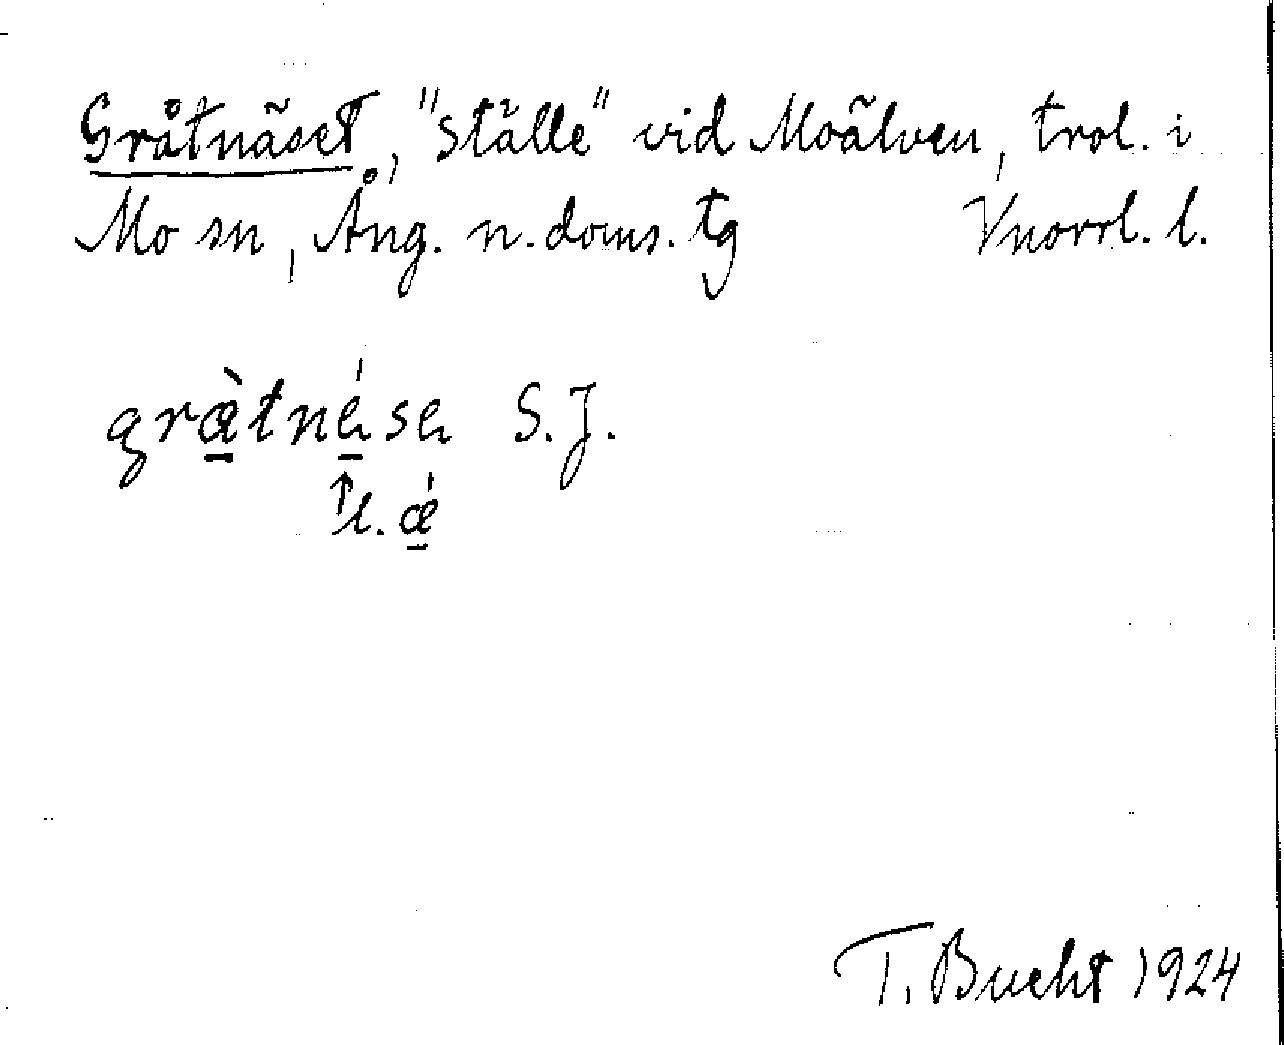 Gråtnäset, "ställe" vid Moälven, trol. i
Mo sn, Ång. n. doms. tg Vnorrl. l.
S. J.
l. ǽ
T. Bucht 1924